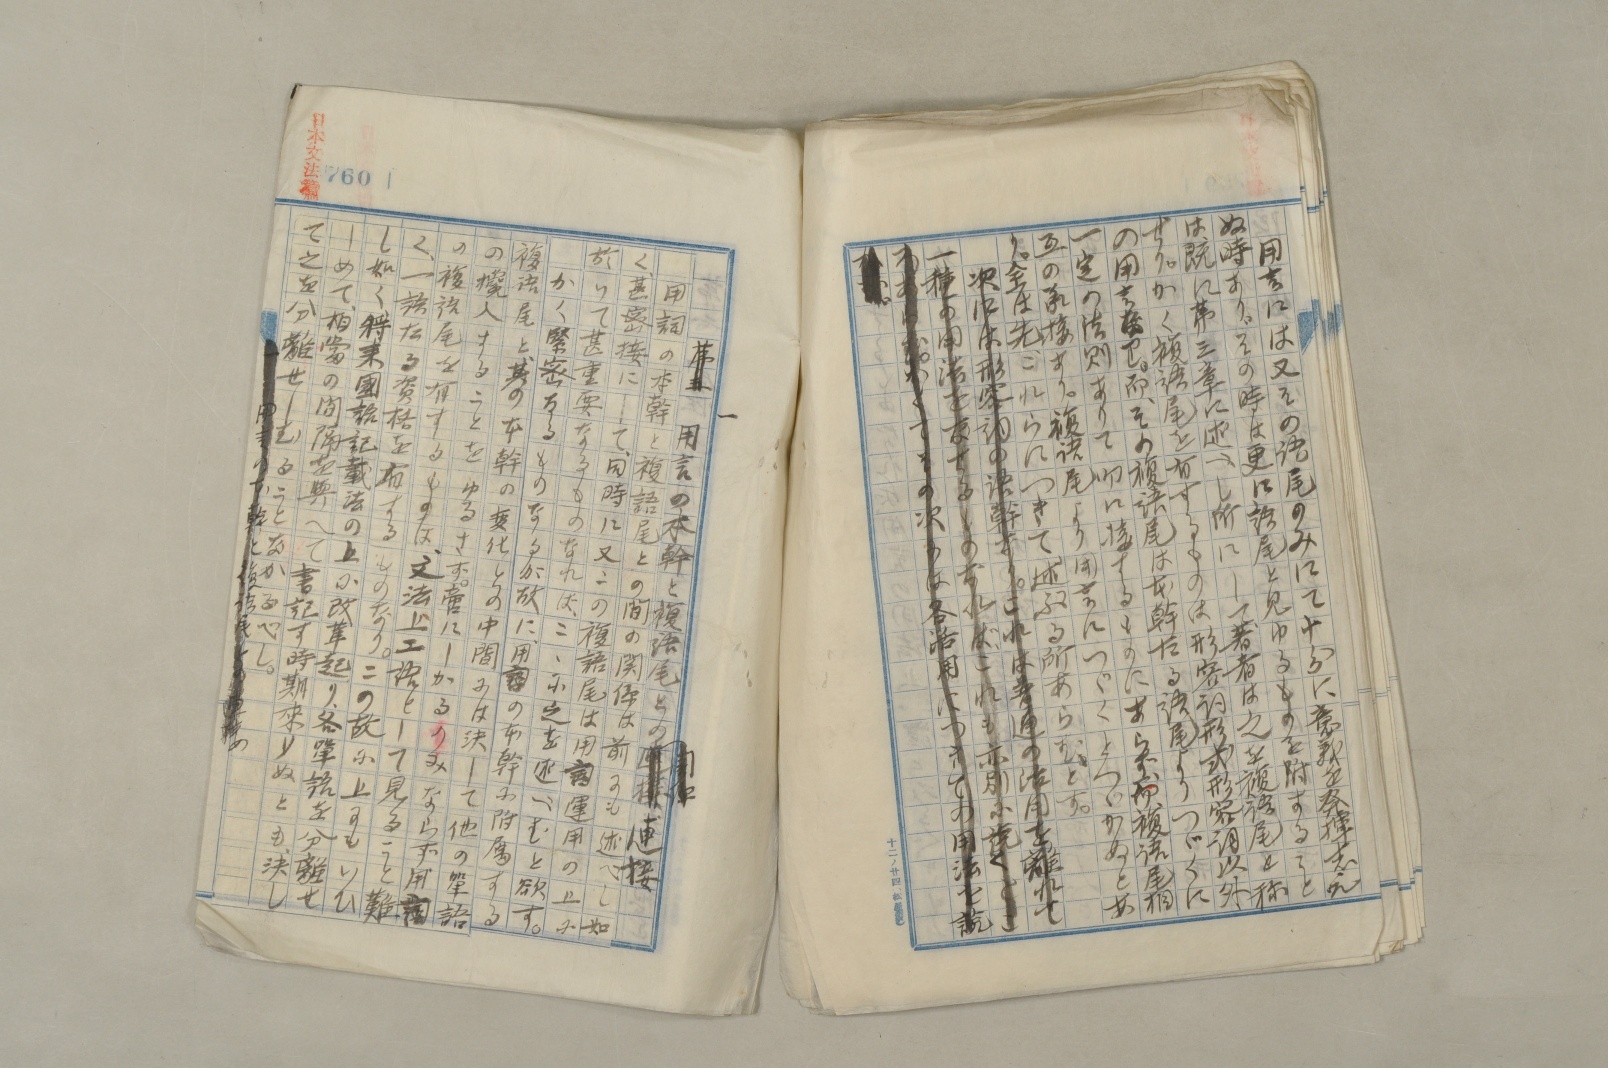 用言には又その語尾のみにて十分に意義を発揮し
ぬ時あり。その時は更に語尾と見ゆるものを附すること
は既に第三章に述べし所にして、著者は之を複語尾と称
せり。かく複語尾を有するものは形容詞形式形容詞以外
の用言
而、その複語尾は本幹たる語尾よりつゞくに
一定の法則ありて叨に接するものにあらず。複語尾相
互の承接あり。複語尾より用言につゞくとつゞかぬとあ
り。今は先これらにつきて述ぶる所あらむとす。
次には形容詞の語幹なり。これは普通の活用を離れて
一種の用法を有するものなればこれも亦別に説くべし
その次には各活用につきての用法を説
日本文法論
760
第五 用言の本幹と複語尾との連接
用詞の本幹と複語尾との間の関係は前にも述べし如
く甚密接にして、同時に又この複語尾は用言運用の上に
於いて甚重要なるものなれば、こゝに之を述べむと欲す。
かく緊密なるものなるが故に、用言の本幹に附属する
複語尾と、其の本幹の変化との中間には決して他の単語
の攙入することをゆるさず。啻にしかるのみならず用言
の複語尾を有するものは、文法上一語として見ること難
く、一語たる資格を有するものなり。この故に上にもいひ
し如く将来国語記載法の上に改革起り、各単語を分離せ
しめて、相当の間隔を与へて書記す時期来りぬとも、決し
て之を分離せしむることなかるべし。